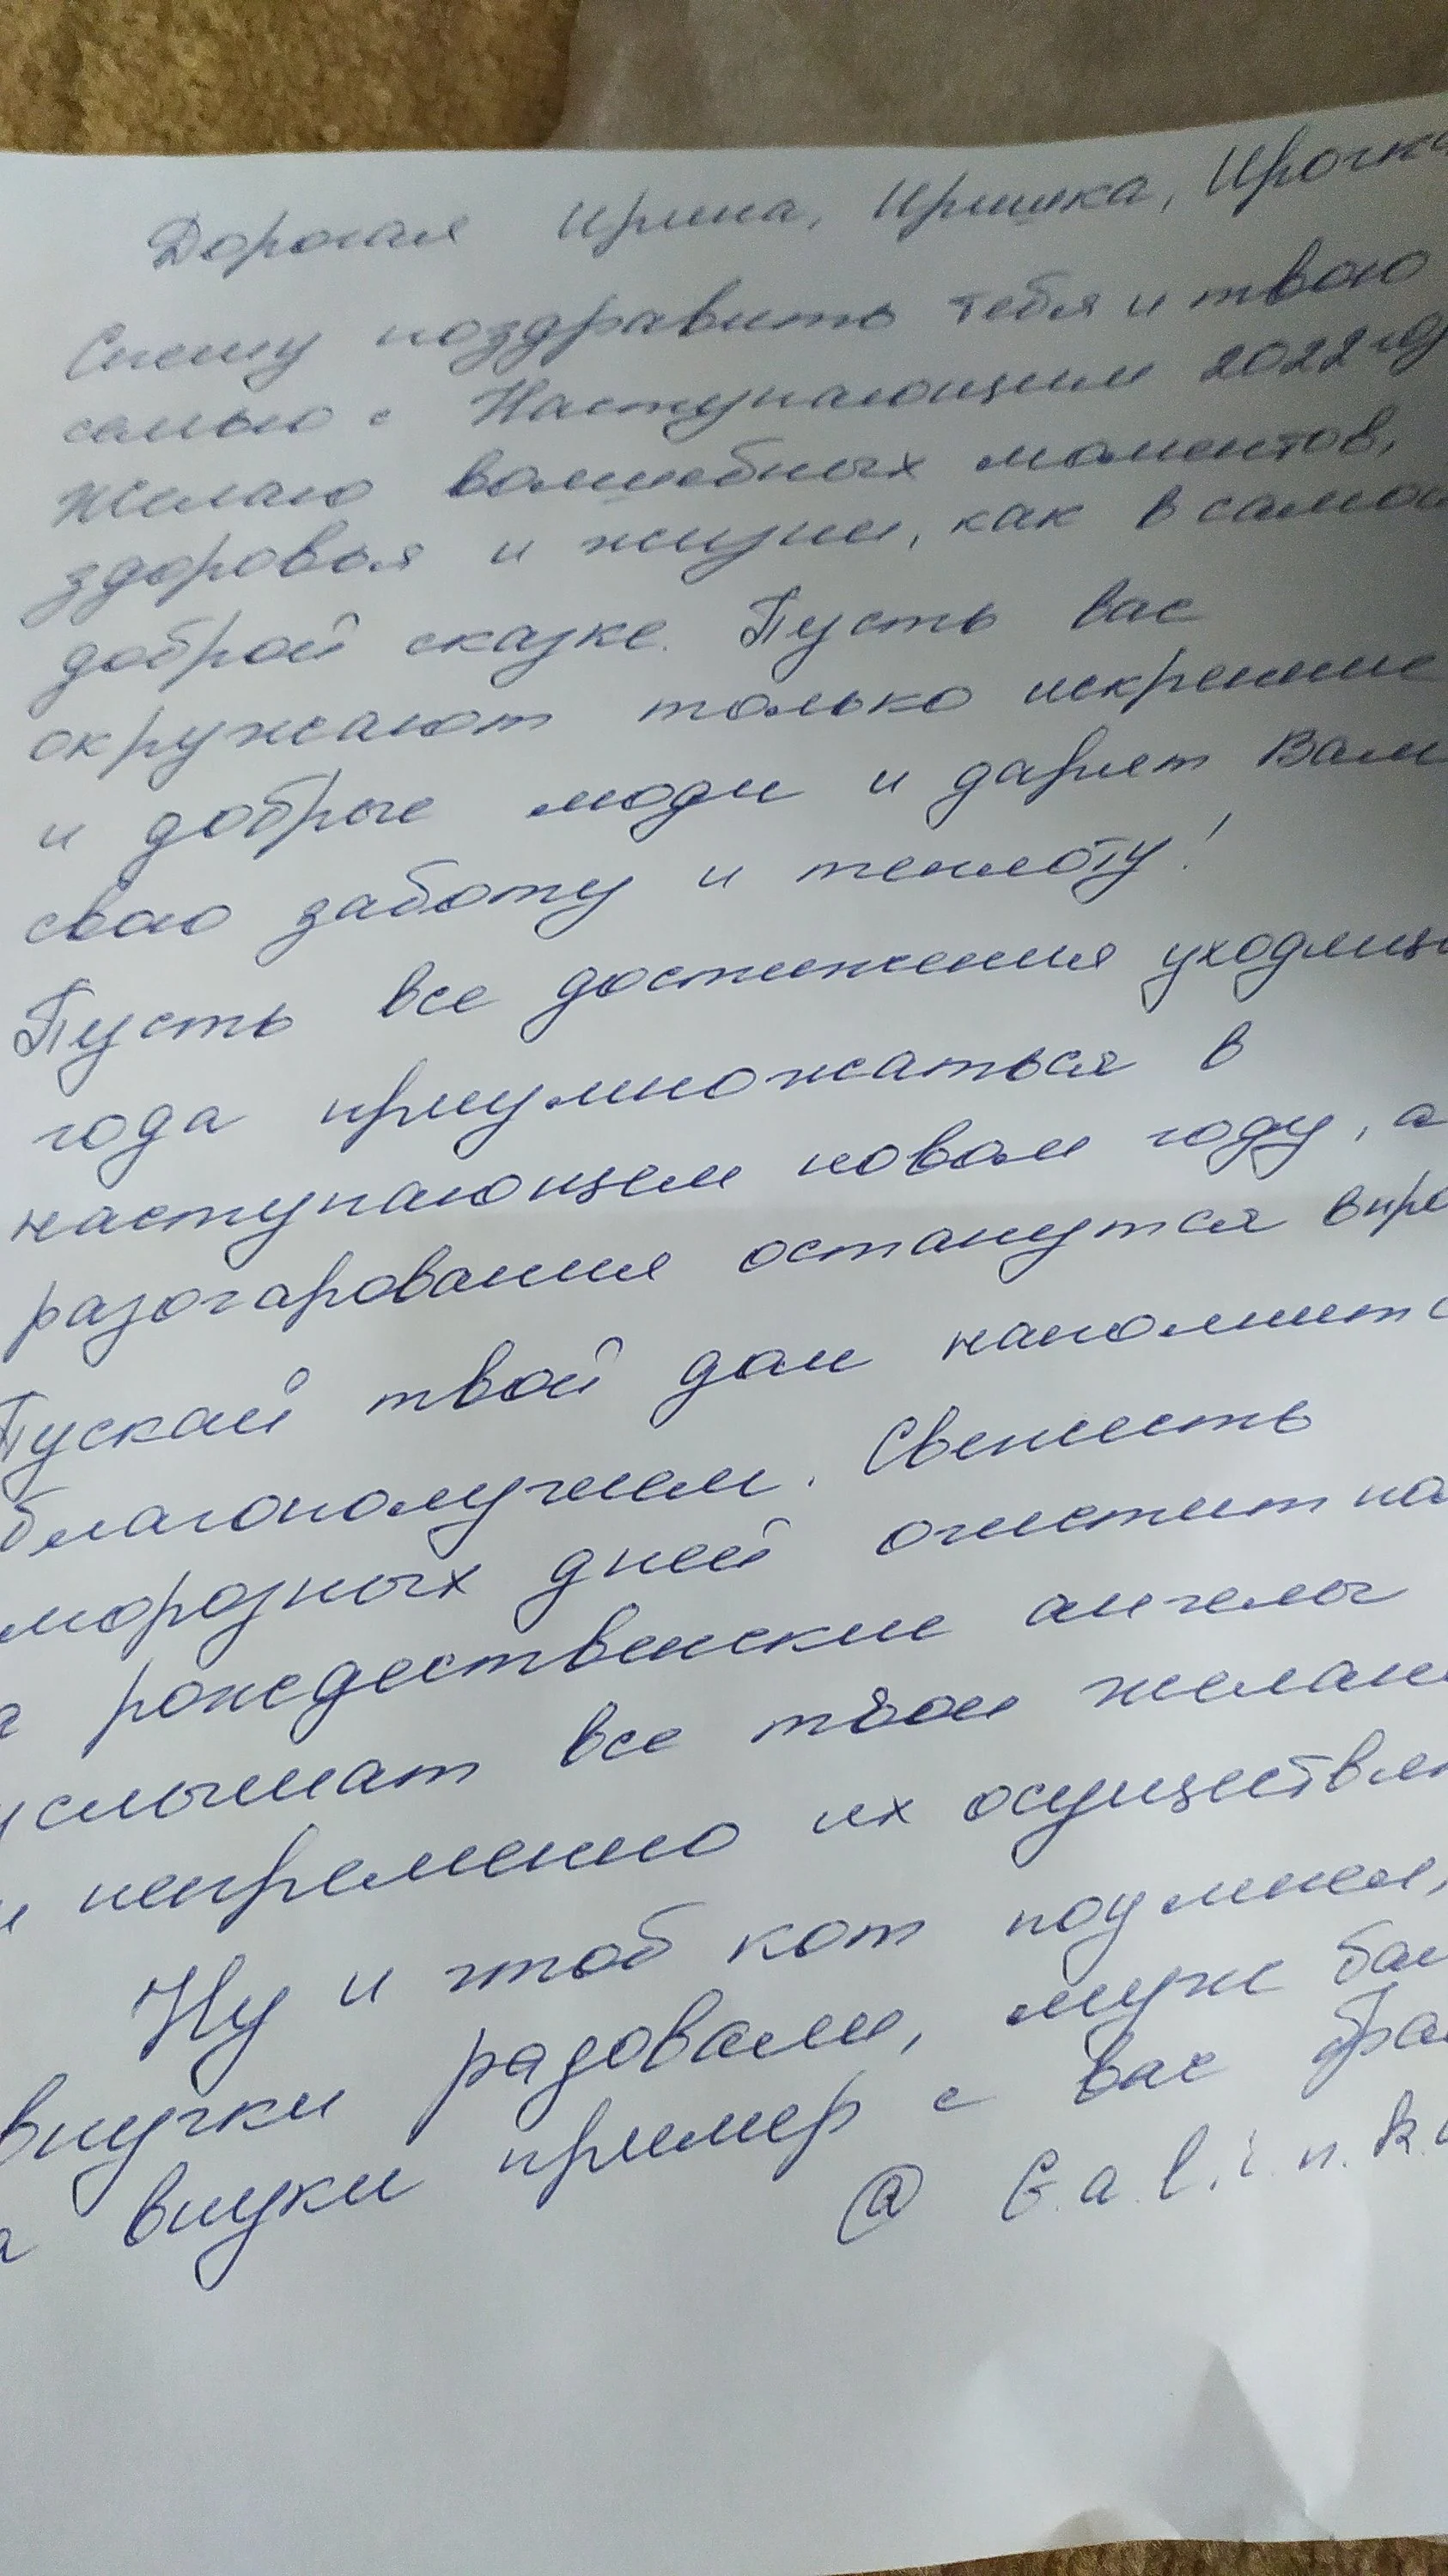 Дорогая Ирина, Иришка, Ирочка
Спешу поздравить тебя и твою
семью с Наступающим 2022 год
Желаю волшебных моментов,
здоровья и жизни, как в самой
доброй сказке. Пусть вас
окружают только искренние
и добрые люди и дарят Вам
свою заботу и теплоту!
Пусть все достижения уходяще
года приумножаться в
наступающем новом году, а
разочарования останутся в про
Пускай твой дом наполнитс
благополучием. Свежесть
морозных дней очистит
а рождественские ангелы
услышат все твои желан
и непременно их осуществл
Ну и чтоб кот поумнел,
внучки радовали, муж
а внуки пример с вас
@ G.a.l.i.n.k.